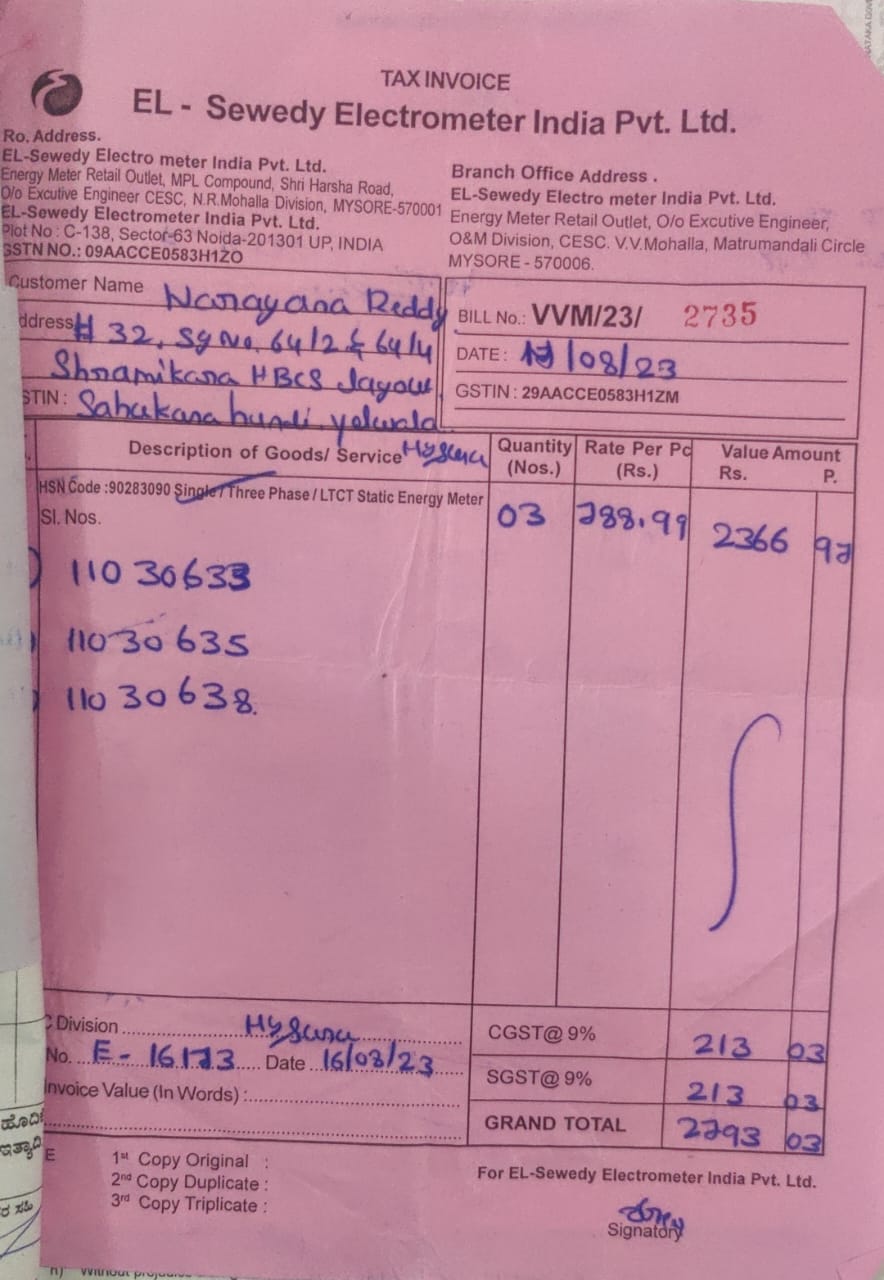 TAX INVOICE
EL - Sewedy Electrometer India Pvt. Ltd.
Ro. Address.
EL-Sewedy Electro meter India Pvt. Ltd.
Energy Meter Retail Outlet, MPL Compound, Shri Harsha Road,
O/o Excutive Engineer CESC, N.R.Mohalla Division, MYSORE-570001
EL-Sewedy Electrometer India Pvt. Ltd.
Plot No : C-138, Sector-63 Noida-201301 UP, INDIA
GSTN NO.: 09AACCE0583H1ZO
Branch Office Address .
EL-Sewedy Electro meter India Pvt. Ltd.
Energy Meter Retail Outlet, O/o Excutive Engineer,
O&M Division, CESC. V.V.Mohalla, Matrumandali Circle
MYSORE - 570006.
Customer Name Narayana Reddy
ddress # 32, Sy No. 64/2 & 64/4
Shramikara HBCS Layout
STIN : Sahukara hundi, yelwala
Mysuru
BILL No.: VVM/23/ 2735
DATE : 17/08/23
GSTIN : 29AACCE0583H1ZM
Description of Goods/ Service Quantity (Nos.) Rate Per Pc (Rs.) Value Amount Rs. P.
HSN Code :90283090 Single / Three Phase / LTCT Static Energy Meter 03 788.99 2366 97
Sl. Nos.
) 11030633
) 11030635
) 11030638.
C Division Mysuru
No. E - 16173 Date 16/08/23
Invoice Value (In Words) :
CGST@ 9% 213 03
SGST@ 9% 213 03
GRAND TOTAL 2793 03
E
1st Copy Original :
2nd Copy Duplicate :
3rd Copy Triplicate :
For EL-Sewedy Electrometer India Pvt. Ltd.
Signatory